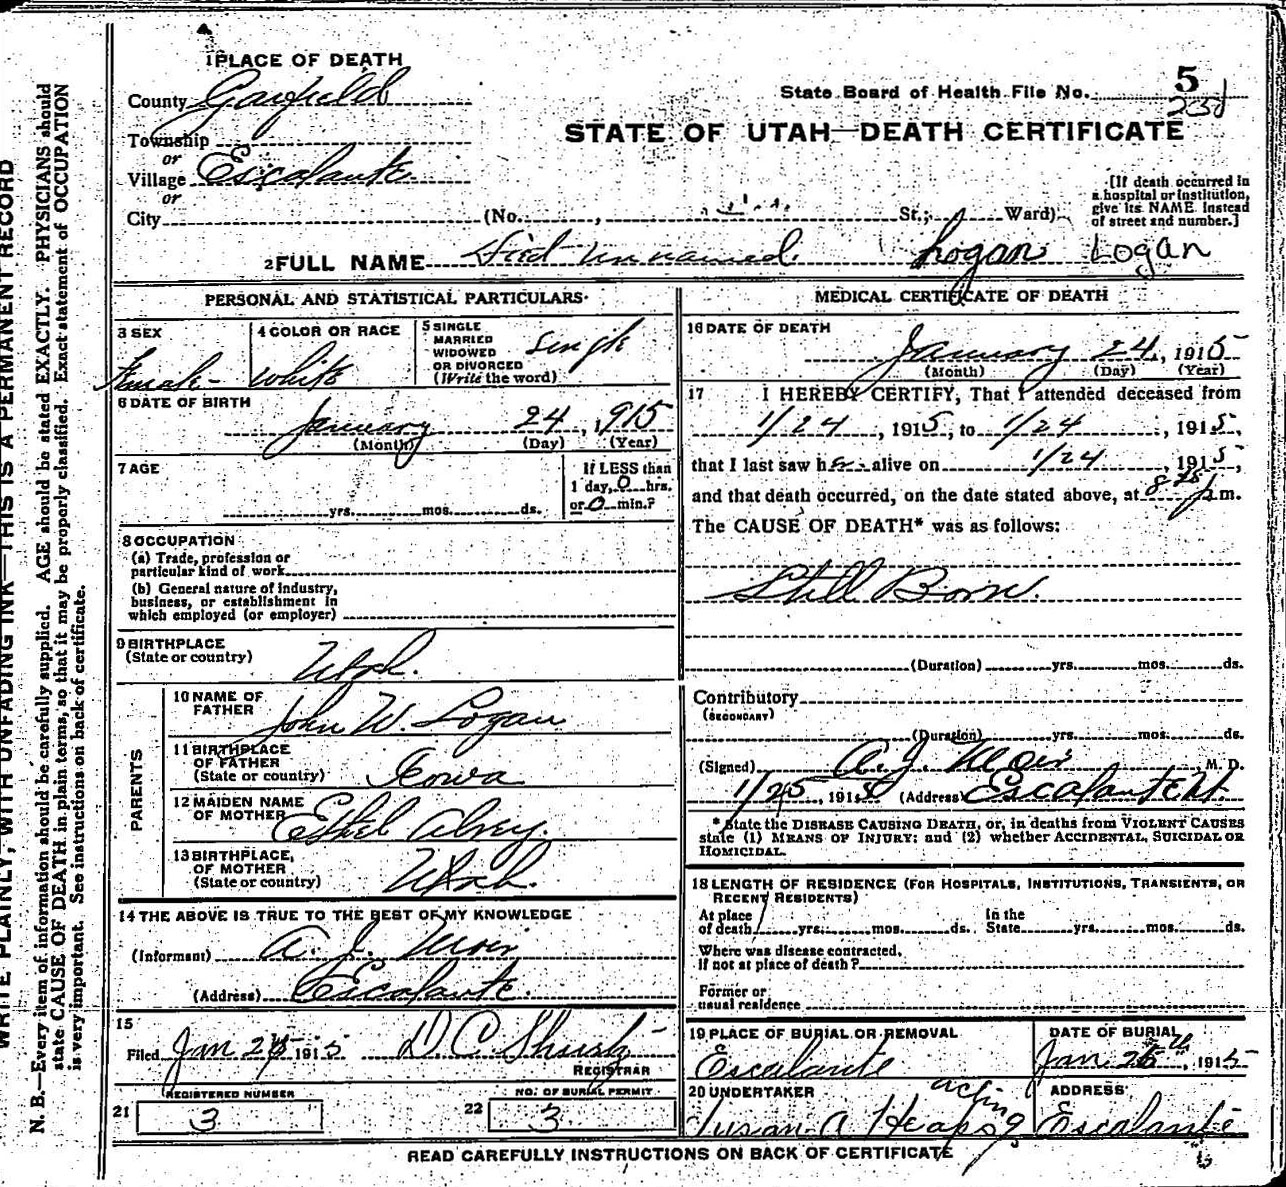 1 PLACE OF DEATH
County Garfield
State Board of Health File No. 5
231
STATE OF UTAH—DEATH CERTIFICATE
Township
or
Village Escalante
or
City (No. , St.; Ward)
[If death occurred in a hospital or institution, give its NAME instead of street and number.]
2 FULL NAME unnamed Logan Logan
PERSONAL AND STATISTICAL PARTICULARS
3 SEX
Female
4 COLOR OR RACE
White
5 SINGLE MARRIED WIDOWED OR DIVORCED (Write the word)
Single
6 DATE OF BIRTH
January 24, 1915
(Month) (Day) (Year)
7 AGE
yrs. mos. ds.
If LESS than 1 day, 0 hrs. or 0 min.?
8 OCCUPATION
(a) Trade, profession or particular kind of work
(b) General nature of industry, business, or establishment in which employed (or employer)
9 BIRTHPLACE (State or country)
Utah.
PARENTS
10 NAME OF FATHER
John W. Logan
11 BIRTHPLACE OF FATHER (State or country)
Iowa
12 MAIDEN NAME OF MOTHER
Ethel Alvey.
13 BIRTHPLACE OF MOTHER (State or country)
Utah.
14 THE ABOVE IS TRUE TO THE BEST OF MY KNOWLEDGE
(Informant) A. J.
(Address) Escalante.
15
Filed Jan 1915 D C
REGISTRAR
REGISTERED NUMBER
21 3
NO. OF BURIAL PERMIT
22 3
MEDICAL CERTIFICATE OF DEATH
16 DATE OF DEATH
January 24, 1915
(Month) (Day) (Year)
17 I HEREBY CERTIFY, That I attended deceased from
1/24, 1915, to 1/24, 1915,
that I last saw her alive on 1/24, 1915,
and that death occurred, on the date stated above, at 8 p m.
The CAUSE OF DEATH* was as follows:
Still Born.
(Duration) yrs. mos. ds.
Contributory
(SECONDARY)
(Duration) yrs. mos. ds.
(Signed) A. J. M. D.
1/25, 1915 (Address) Escalante Ut.
* State the DISEASE CAUSING DEATH, or, in deaths from VIOLENT CAUSES
state (1) MEANS OF INJURY; and (2) whether ACCIDENTAL, SUICIDAL OR
HOMICIDAL.
18 LENGTH OF RESIDENCE (FOR HOSPITALS, INSTITUTIONS, TRANSIENTS, OR
RECENT RESIDENTS)
At place of death yrs. mos. ds. In the State yrs. mos. ds.
Where was disease contracted,
If not at place of death?
Former or
usual residence
19 PLACE OF BURIAL OR REMOVAL
Escalante
DATE OF BURIAL
Jan 25th, 1915
20 UNDERTAKER
acting
Susan A Heaps
ADDRESS
Escalante
READ CAREFULLY INSTRUCTIONS ON BACK OF CERTIFICATE
WRITE PLAINLY, WITH UNFADING INK—THIS IS A PERMANENT RECORD
N. B.—Every item of information should be carefully supplied. AGE should be stated EXACTLY. PHYSICIANS should
state CAUSE OF DEATH in plain terms, so that it may be properly classified. Exact statement of OCCUPATION
is very important. See instructions on back of certificate.